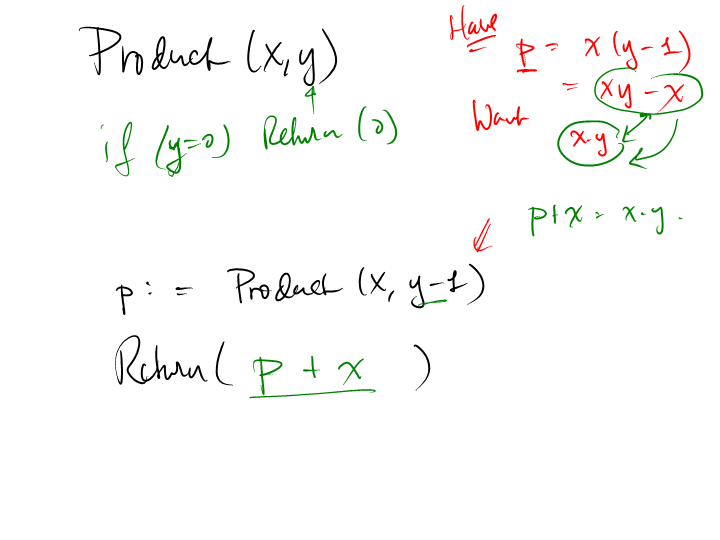 Product (x, y)
if (y=0) Return (0)
p := Product (x, y-1)
Return ( p + x )
Have
p = x (y-1)
= xy - x
Want
x.y
p+x = x.y.